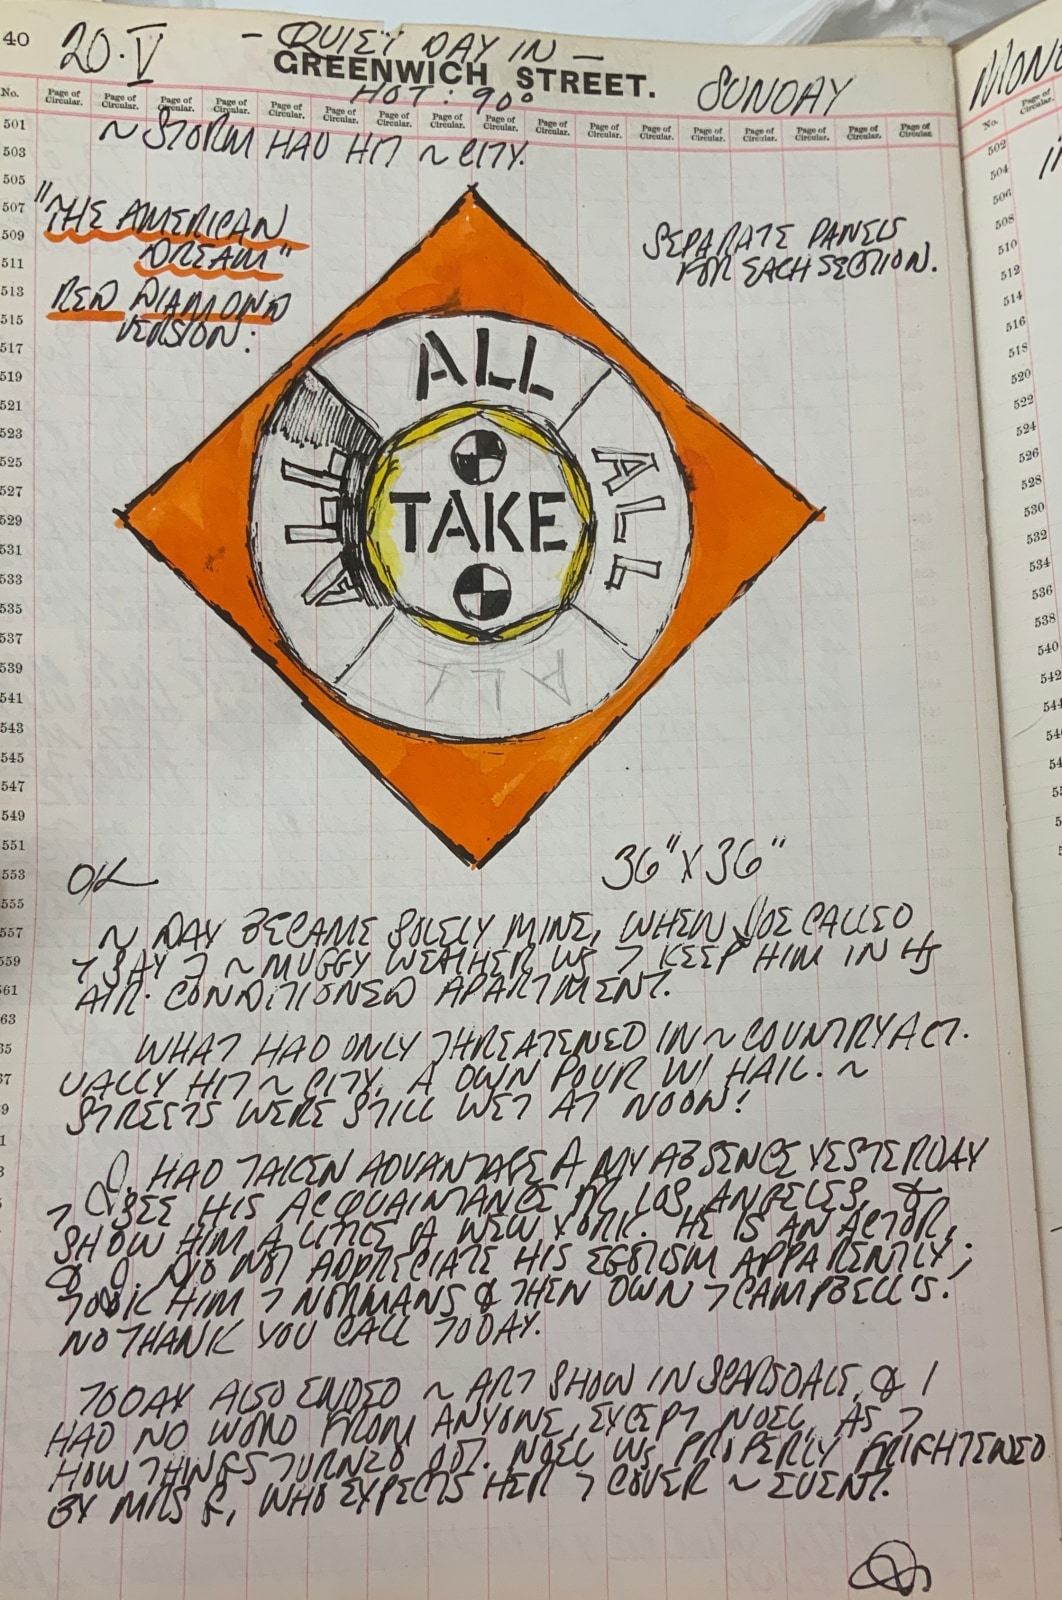 40
20·V
- QUIET DAY IN -
GREENWICH STREET.
HOT: 90°
SUNDAY
MON
No. Page of Circular. Page of Circular. Page of Circular. Page of Circular. Page of Circular. Page of Circular. Page of Circular. Page of Circular. Page of Circular. Page of Circular. Page of Circular. Page of Circular. Page of Circular. Page of Circular. Page of Circular. Page of Circular. Page of Circular.
No. Page of Circular.
~ STORM HAD HIT ~ CITY.
"THE AMERICAN
DREAM"
RED DIAMOND
VERSION:
SEPARATE PANELS
FOR EACH SECTION.
ALL
ALL
ALL
TAKE
ALL
36" X 36"
OK
~ DAY BECAME SOLELY MINE, WHEN JOE CALLED
7 SAY 7 ~ MUGGY WEATHER WS 7 KEEP HIM IN HS
AIR-CONDITIONED APARTMENT.
WHAT HAD ONLY THREATENED IN ~ COUNTRY ACT-
UALLY HIT ~ CITY. A OWN POUR W/ HAIL. ~
STREETS WERE STILL WET AT NOON!
J. HAD TAKEN ADVANTAGE A MY ABSENCE YESTERDAY
7 SEE HIS ACQUAINTANCE FR LOS ANGELES, &
SHOW HIM A LITTLE A NEW YORK. HE IS AN ACTOR,
& J. DID NOT APPRECIATE HIS EGOTISM APPARENTLY;
TOOK HIM 7 NORMANS & THEN OWN 7 CAMPBELL'S.
NO THANK YOU CALL TODAY.
TODAY ALSO ENDED ~ ART SHOW IN SCARSDALE, & I
HAD NO WORD FROM ANYONE, EXCEPT NOEL, AS 7
HOW THINGS TURNED OUT. NOEL WS PROPERLY FRIGHTENED
BY MRS R, WHO EXPECTS HER 7 COVER ~ EVENT.
501
503
505
507
509
511
513
515
517
519
521
523
525
527
529
531
533
535
537
539
541
543
545
547
549
551
553
555
557
559
561
63
65
67
502
504
506
508
510
512
514
516
518
520
522
524
526
528
530
532
534
536
538
540
542
544